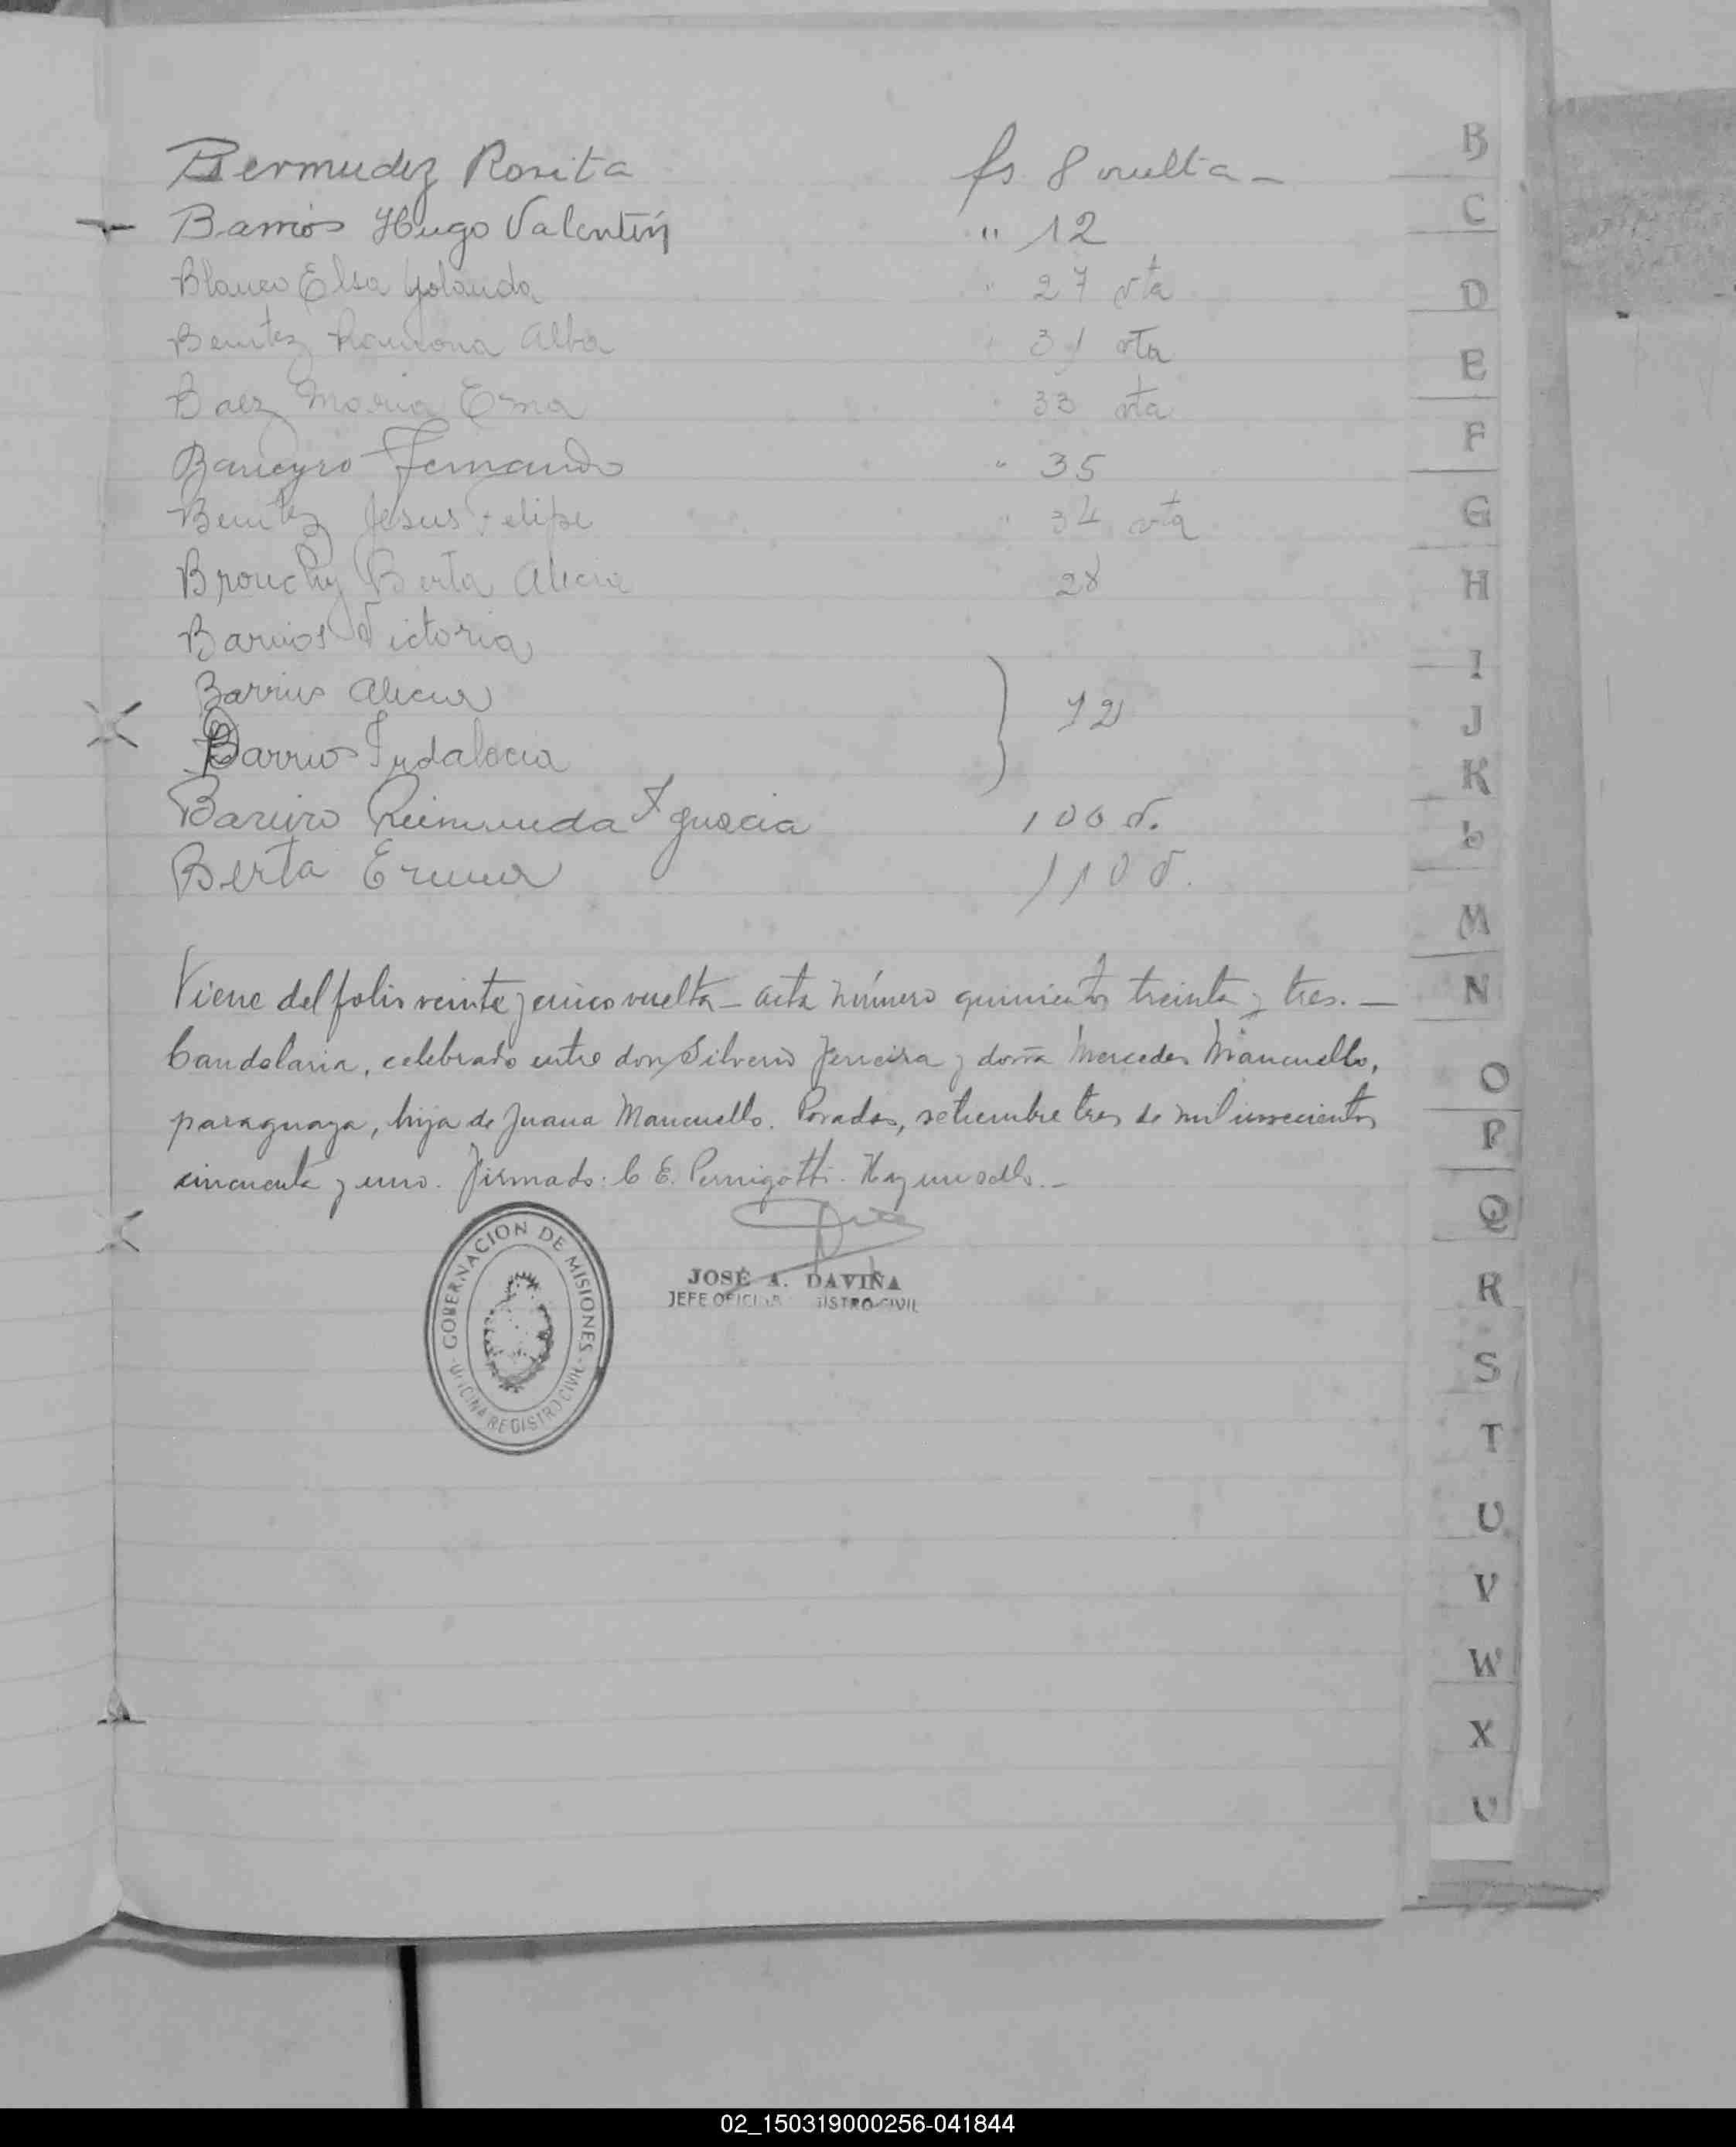 Bermudez Rosita fs 8 vuelta -
Barrios Hugo Valentín " 12
Blanco Elsa Yolanda " 27 vta
Benitez Ramona Alba " 31 vta
Baez Maria Ema " 33 vta
Fernando " 35
Benitez Jesus Felipe " 34 vta
Brouchy Berta Alicia 28
Barrios Victoria
Barrios Alicia
Barrios Indalecia } 72
Reimunda Ignacia 100 v.
Berta 110 v.
Viene del folio veinte y cinco vuelta - acta número quinientos treinta y tres. -
Candelaria, celebrado entre don Silverio Ferreira y doña Mercedes Mancuello,
paraguaya, hija de Juana Mancuello. Posadas, setiembre tres de mil novecientos
cincuenta y uno. Firmado: C. E. Pernigotti. Hay un sello. -
GOBERNACION DE MISIONES
OFICINA REGISTRO CIVIL
JOSÉ A. DAVIÑA
JEFE OFICINA REGISTRO CIVIL
B
C
D
E
F
G
H
I
J
K
L
M
N
O
P
Q
R
S
T
U
V
W
X
02_150319000256-041844